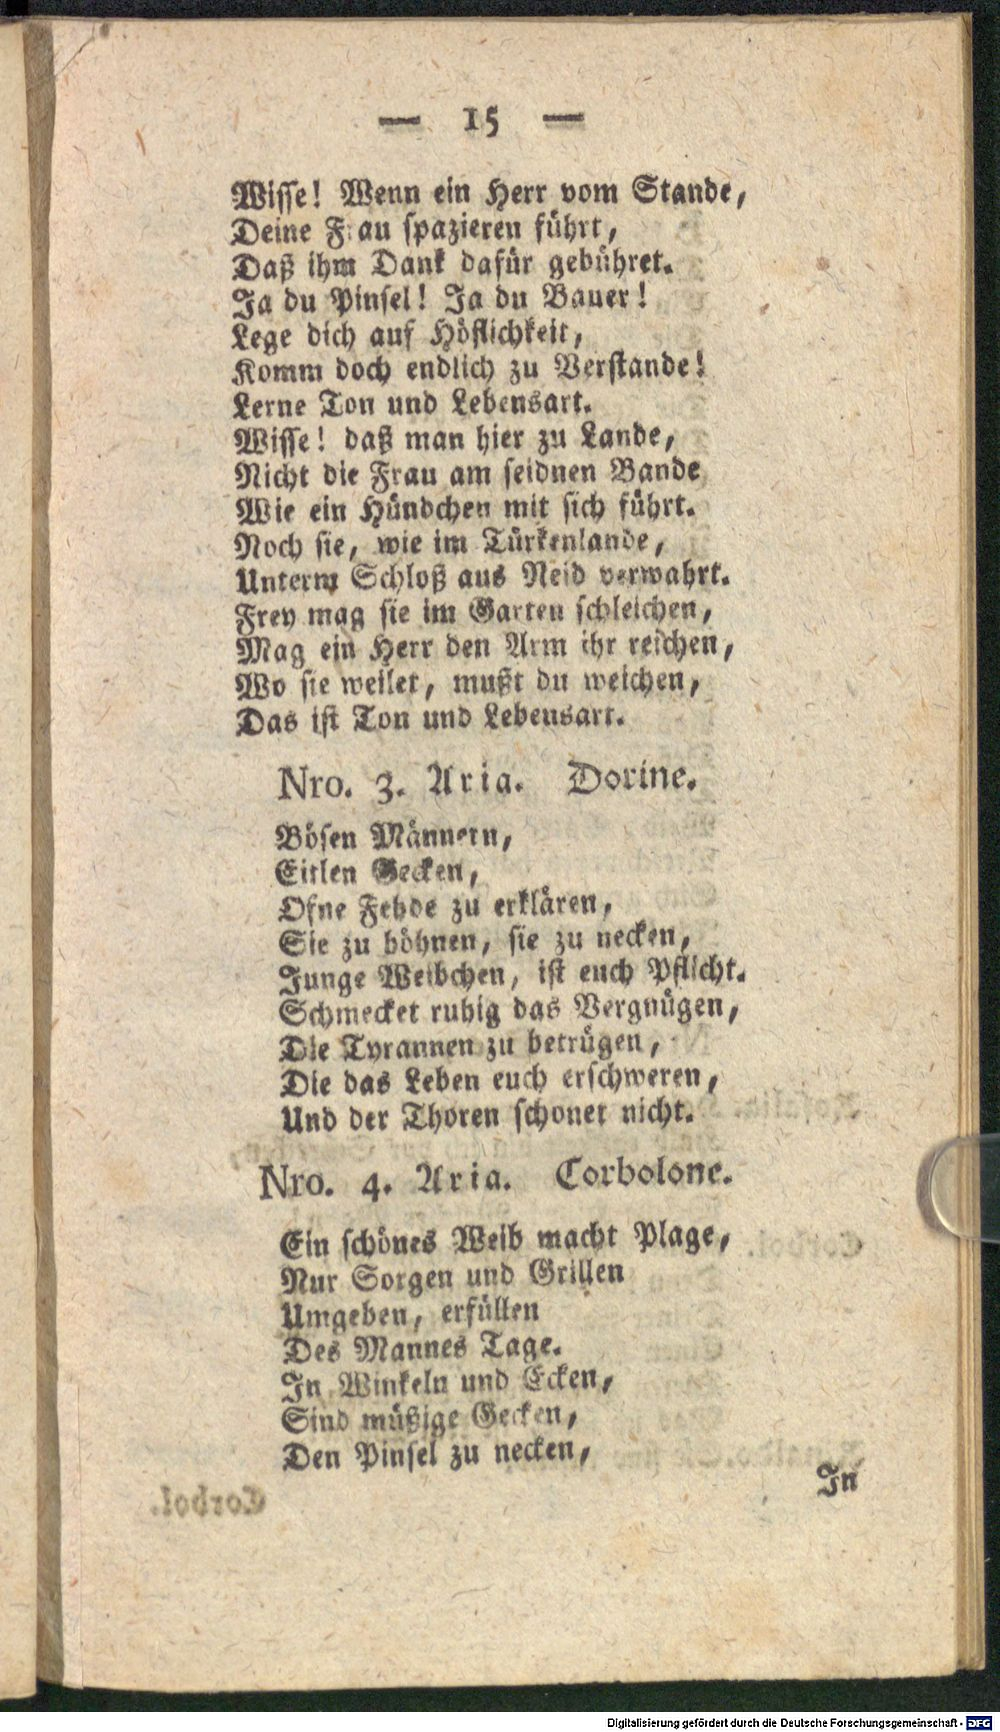 — 15 —
Wisse! Wenn ein Herr vom Stande,
Deine Frau spazieren führt,
Daß ihm Dank dafür gebühret.
Ja du Pinsel! Ja du Bauer!
Lege dich auf Höflichkeit,
Komm doch endlich zu Verstande!
Lerne Ton und Lebensart.
Wisse! daß man hier zu Lande,
Nicht die Frau am seidnen Bande
Wie ein Hündchen mit sich führt.
Noch sie, wie im Türkenlande,
Unterm Schloß aus Neid verwahrt.
Frey mag sie im Garten schleichen,
Mag ein Herr den Arm ihr reichen,
Wo sie weilet, mußt du weichen,
Das ist Ton und Lebensart.
Nro. 3. Aria. Dorine.
Bösen Männern,
Eitlen Gecken,
Ofne Fehde zu erklären,
Sie zu höhnen, sie zu necken,
Junge Weibchen, ist euch Pflicht.
Schmecket ruhig das Vergnügen,
Die Tyrannen zu betrügen,
Die das Leben euch erschweren,
Und der Thoren schonet nicht.
Nro. 4. Aria. Corbolone.
Ein schönes Weib macht Plage,
Nur Sorgen und Grillen
Umgeben, erfüllen
Des Mannes Tage.
In Winkeln und Ecken,
Sind müßige Gecken,
Den Pinsel zu necken,
In
Digitalisierung gefördert durch die Deutsche Forschungsgemeinschaft - DFG